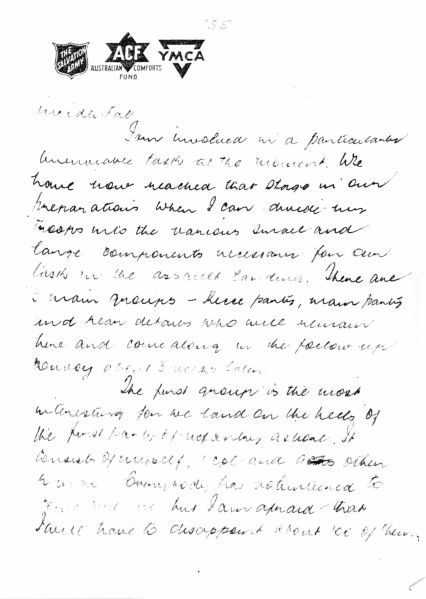 155
THE SALVATION ARMY
ACF
AUSTRALIAN COMFORTS FUND
YMCA
incidental
I am involved in a particularly
unenviable task at the moment. We
have now reached that stage in our
preparations when I can divide my
troops into the various small and
large components necessary for our
task in the assault landing. There are
3 main groups – Recce party, main party
and rear details who will remain
here and come along in the follow up
convoy about 3 weeks later.
The first group is the most
interesting for we land on the heels of
the first party of infantry ashore. It
consists of myself, and other
Everybody has volunteered to
but I am afraid that
I will have to disappoint about 100 of them.